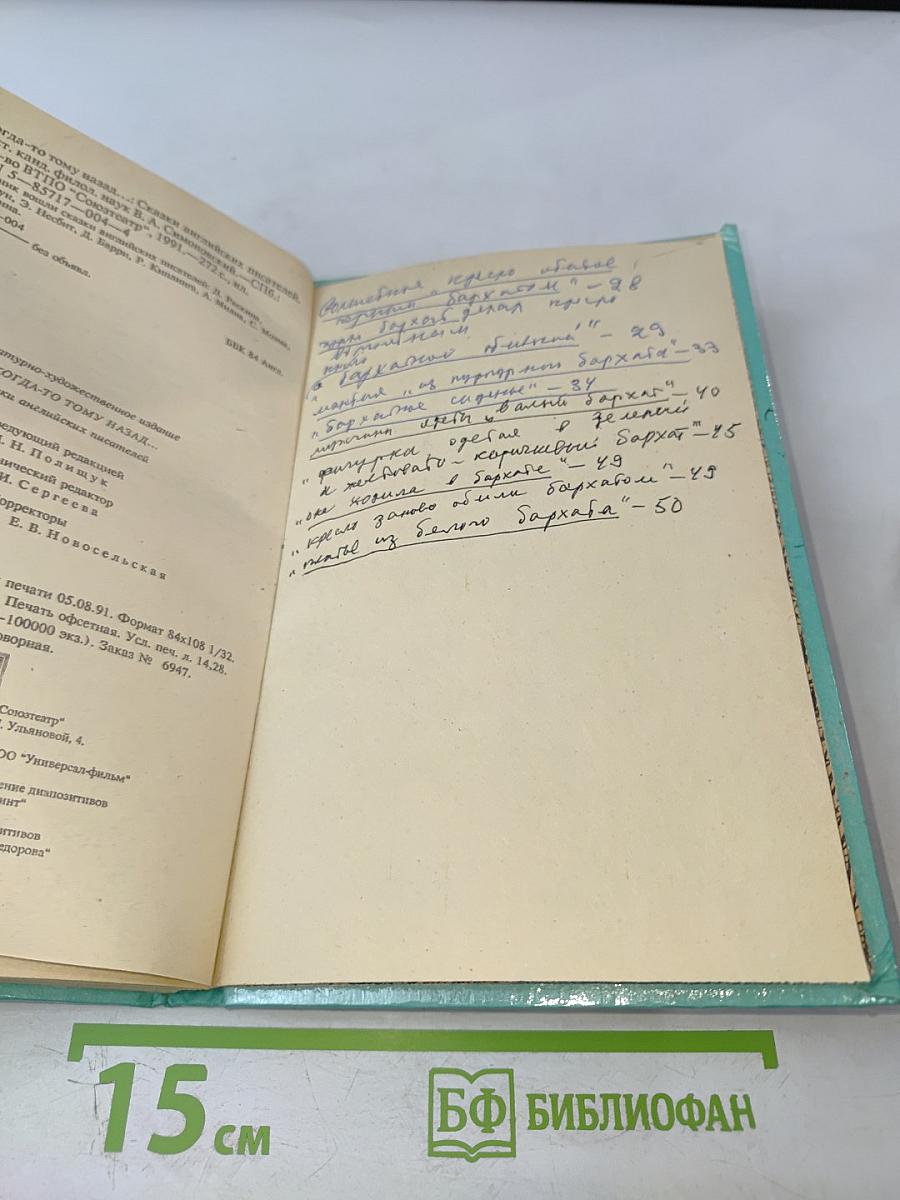 огда-то тому назад...: Сказки английских писателей.
ст. канд. филол. наук В. А. Симоновский.—СПб.:
-во ВТПО "Союзтеатр", 1991.—272 с., ил.
5—85717—004—4
ник вошли сказки английских писателей: Д. Рескина,
Э. Несбит, Д. Барри, Р. Киплинга, А. Милна, С. Моэма,
-004
без объявл.
ББК 84 Англ.
атурно-художественное издание
КОГДА-ТО ТОМУ НАЗАД...
ки английских писателей
едующий редакцией
Н. Полищук
нический редактор
И. Сергеева
орректоры
Е. В. Новосельская
печати 05.08.91. Формат 84х108 1/32.
Печать офсетная. Усл. печ. л. 14,28.
-100000 экз.). Заказ № 6947.
оворная.
Союзтеатр"
Ульяновой, 4.
ОО "Универсал-фильм"
ение диапозитивов
инт"
итивов
едорова"
Волшебное кресло обитое
бархатом" – 28
бархат делал кресло
"в бархатной обивкой" – 29
мантия "из пурпурного бархата" – 33
"бархатное сиденье" – 34
бархат" – 40
"фигурка одетая в зеленый
и желтовато-коричневый бархат" – 45
"она ходила в бархате" – 49
"кресло заново обили бархатом" – 49
"платье из белого бархата" – 50
15 см
БФ БИБЛИОФАН